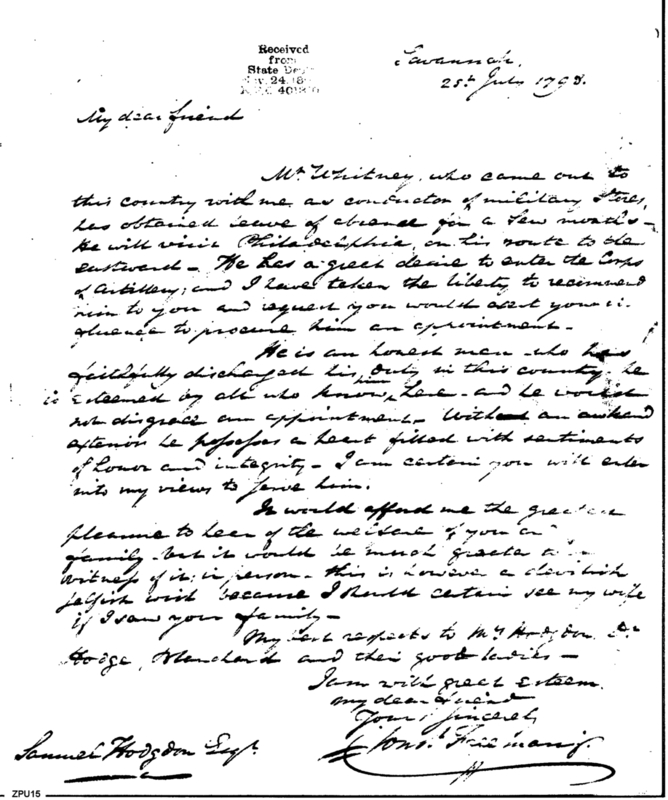 Received
from
State Dept
Nov. 24, 18
Savannah,
25th July 1798.
My dear friend
Mr. Whitney, who came out to
this country with me as conductor of military Stores,
has obtained leave of absence for a few months -
he will visit Philadelphia, on his route to the
eastward - He has a great desire to enter the Corps
of Artillery; and I have taken the liberty to recommend
him to you and request you would exert your in-
fluence to procure him an appointment -
He is an honest man - who has
faithfully discharged his duty in this country - he
is esteemed by all who know him here - and he would
not disgrace an appointment - With an awkward
exterior he possesses a heart filled with sentiments
of honor and integrity - I am certain you will enter
into my views to serve him.
It would afford me the greatest
pleasure to hear of the welfare of you and
family - but it would be much greater to be
witness of it, in person - this is however a devilish
selfish wish because I should certain see my wife
if I saw your family -
My best respects to Mrs Hodgdon, Dr
Hodge, Blanchard and their good ladies -
I am with great esteem
my dear friend
Yours sincerely
Const. Freeman
Samuel Hodgdon Esqr.
ZPU15